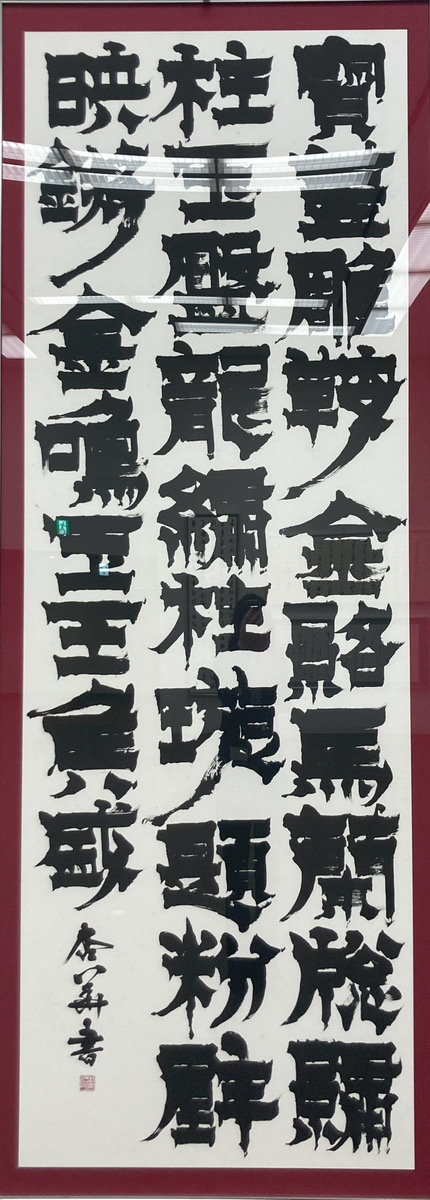 寶蓋雕鞍金絡馬蘭牕繡
柱玉盤龍繡柱璇題粉壁
映鏘金鳴玉王侯盛
杏華書